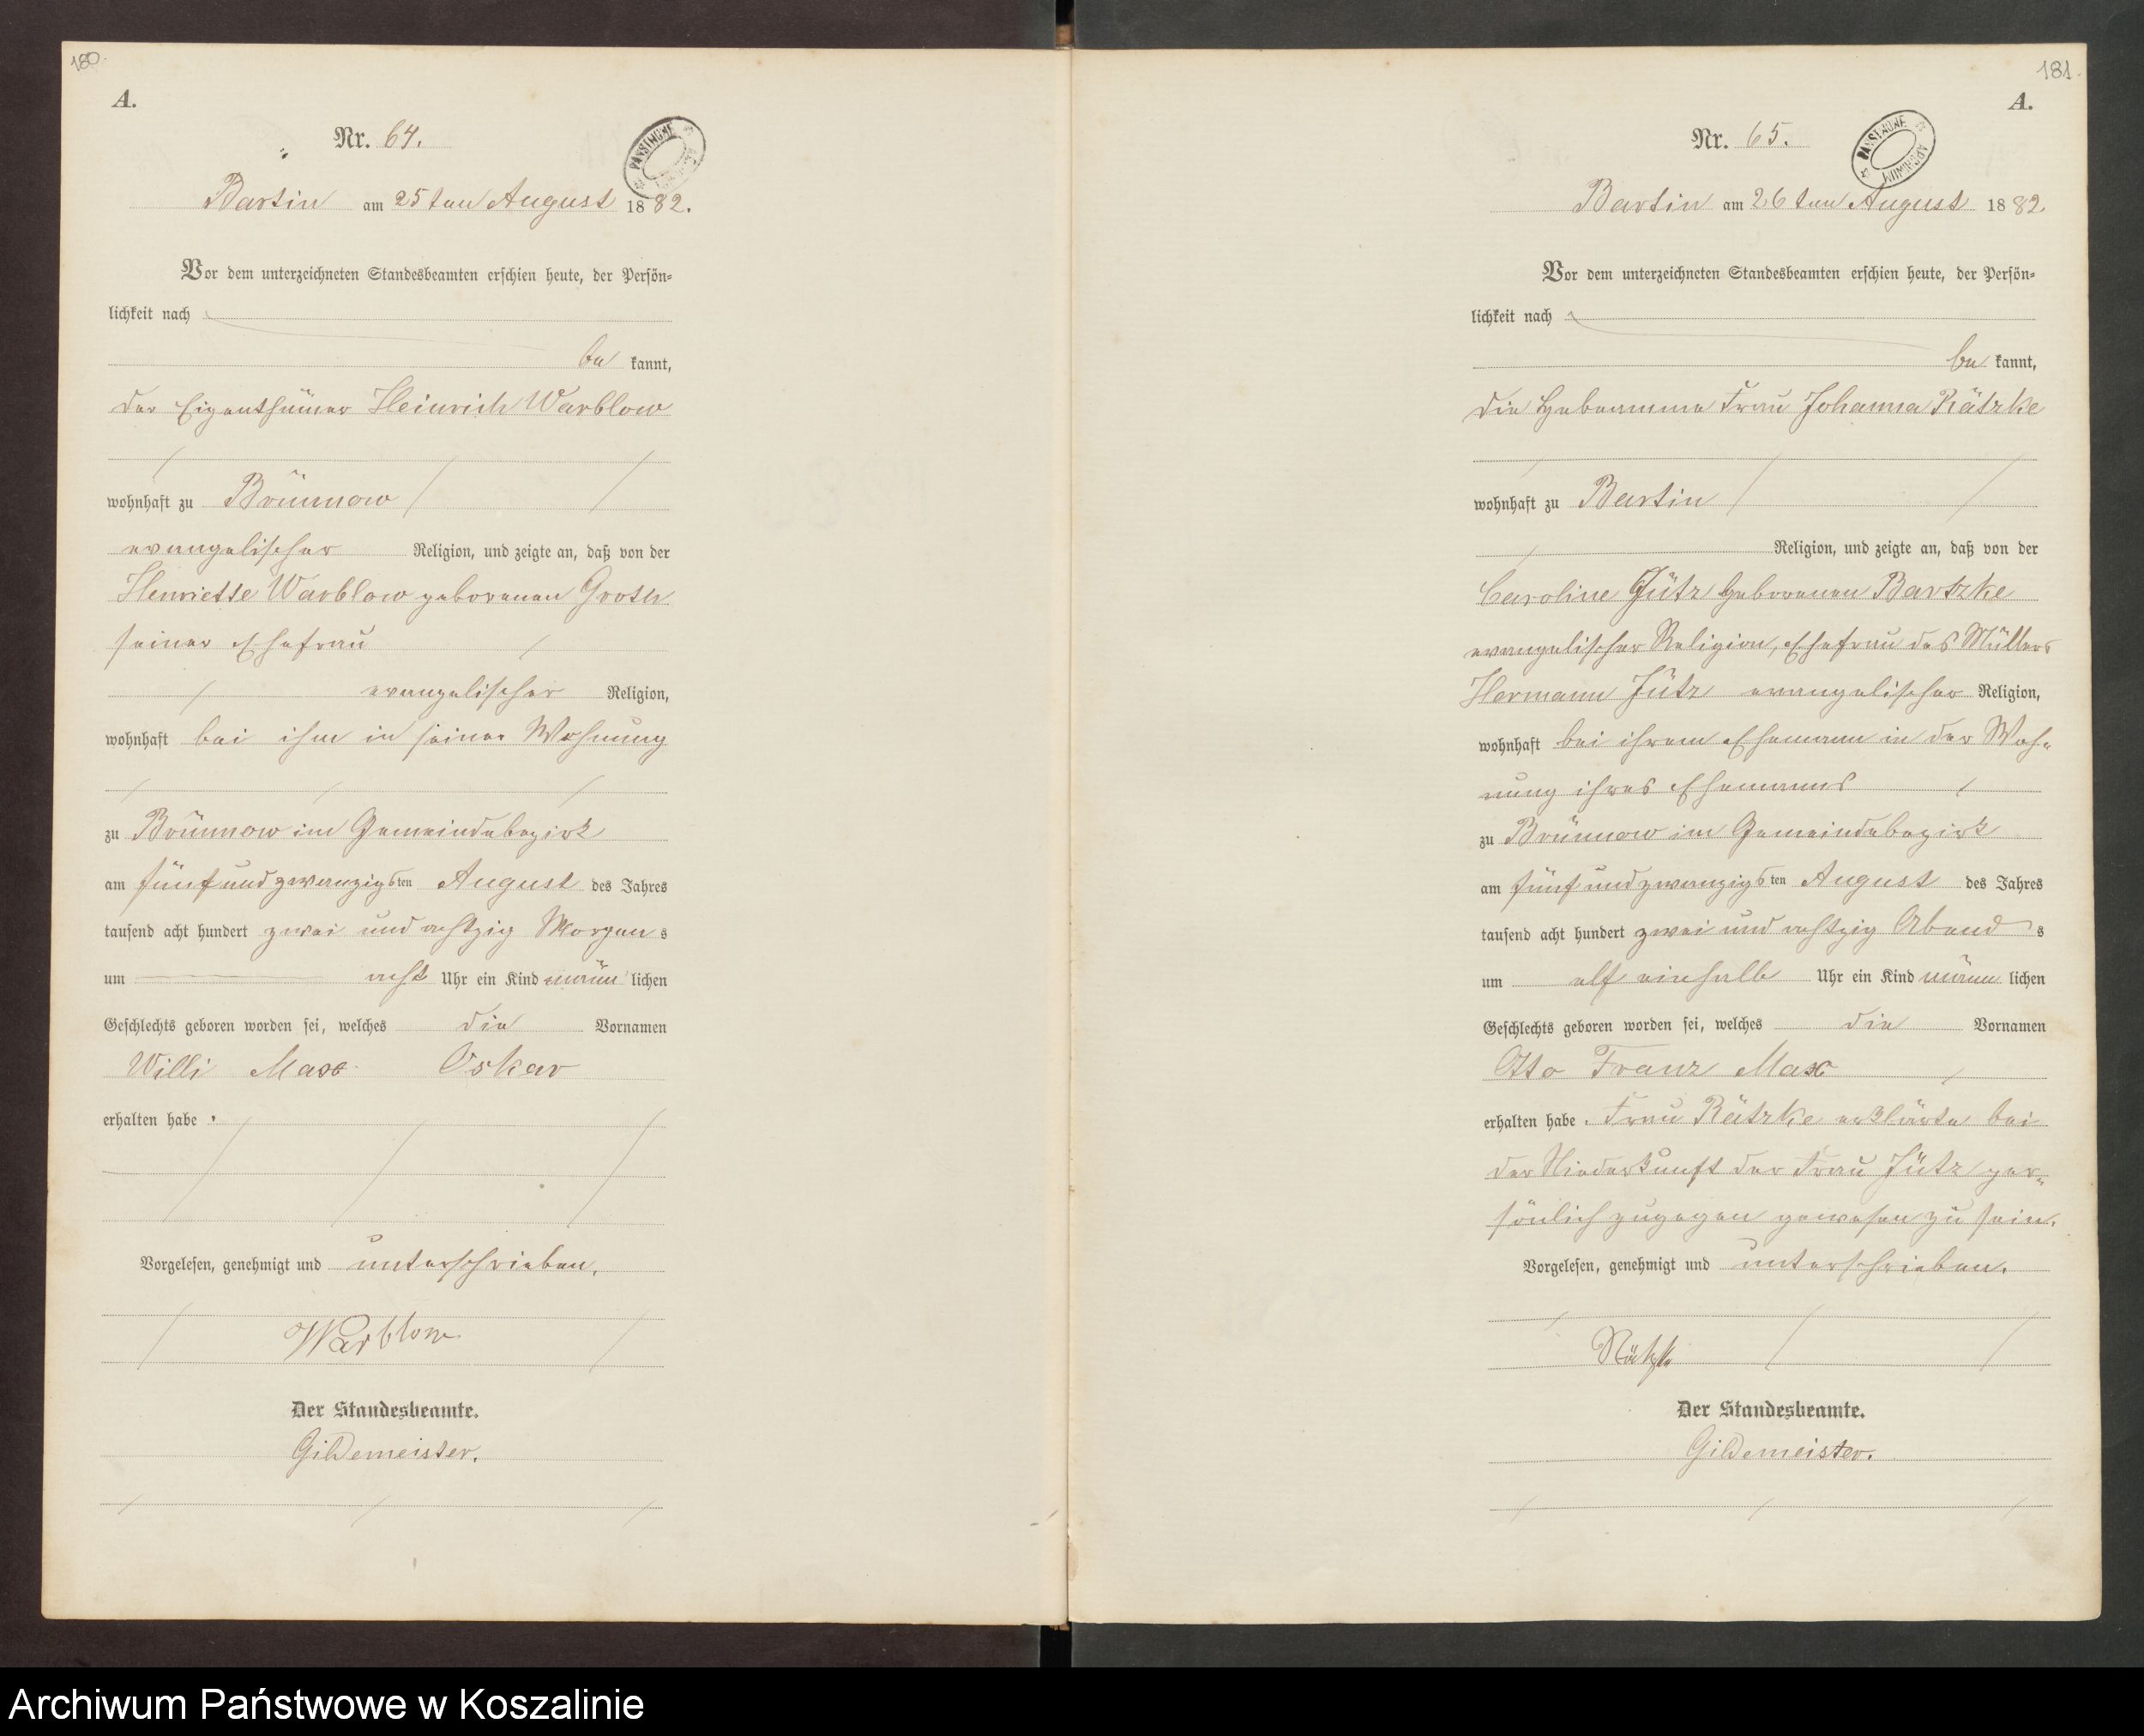 180.
A.
Nr. 64.
PAŃSTWOWE
Bartin am 25ten August 1882.
Vor dem unterzeichneten Standesbeamten erschien heute, der Persön-
lichkeit nach
be kannt,
der Eigenthümer Heinrich Warblow
wohnhaft zu Brünnow
evangelischer Religion, und zeigte an, daß von der
Henriette Warblow geborenen Groth
seiner Ehefrau
evangelischer Religion,
wohnhaft bei ihm in seiner Wohnung
zu Brünnow im Gemeindebezirk
am fünf und zwanzigsten August des Jahres
tausend acht hundert zwei und achtzig Morgens
um acht Uhr ein Kind männlichen
Geschlechts geboren worden sei, welches die Vornamen
Willi Max Oskar
erhalten habe.
Vorgelesen, genehmigt und unterschrieben.
Warblow
Der Standesbeamte.
Gildemeister.
181.
A.
Nr. 65.
PAŃSTWOWE ARCHIWUM
Bartin am 26ten August 1882
Vor dem unterzeichneten Standesbeamten erschien heute, der Persön-
lichkeit nach
be kannt,
die Hebeamme Frau Johanna Rätzke
wohnhaft zu Bartin
Religion, und zeigte an, daß von der
Caroline Jütz geborenen Bartzke
evangelischer Religion, Ehefrau des Müllers
Hermann Jütz evangelischer Religion,
wohnhaft bei ihrem Ehemann in der Woh-
nung ihres Ehemanns
zu Brünnow im Gemeindebezirk
am fünf und zwanzigsten August des Jahres
tausend acht hundert zwei und achtzig Abends
um elf einhalb Uhr ein Kind männlichen
Geschlechts geboren worden sei, welches die Vornamen
Otto Franz Max
erhalten habe. Frau Rätzke erklärte bei
der Niederkunft der Frau Jütz per-
sönlich zugegen gewesen zu sein.
Vorgelesen, genehmigt und unterschrieben.
Rätzke
Der Standesbeamte.
Gildemeister.
Archiwum Państwowe w Koszalinie